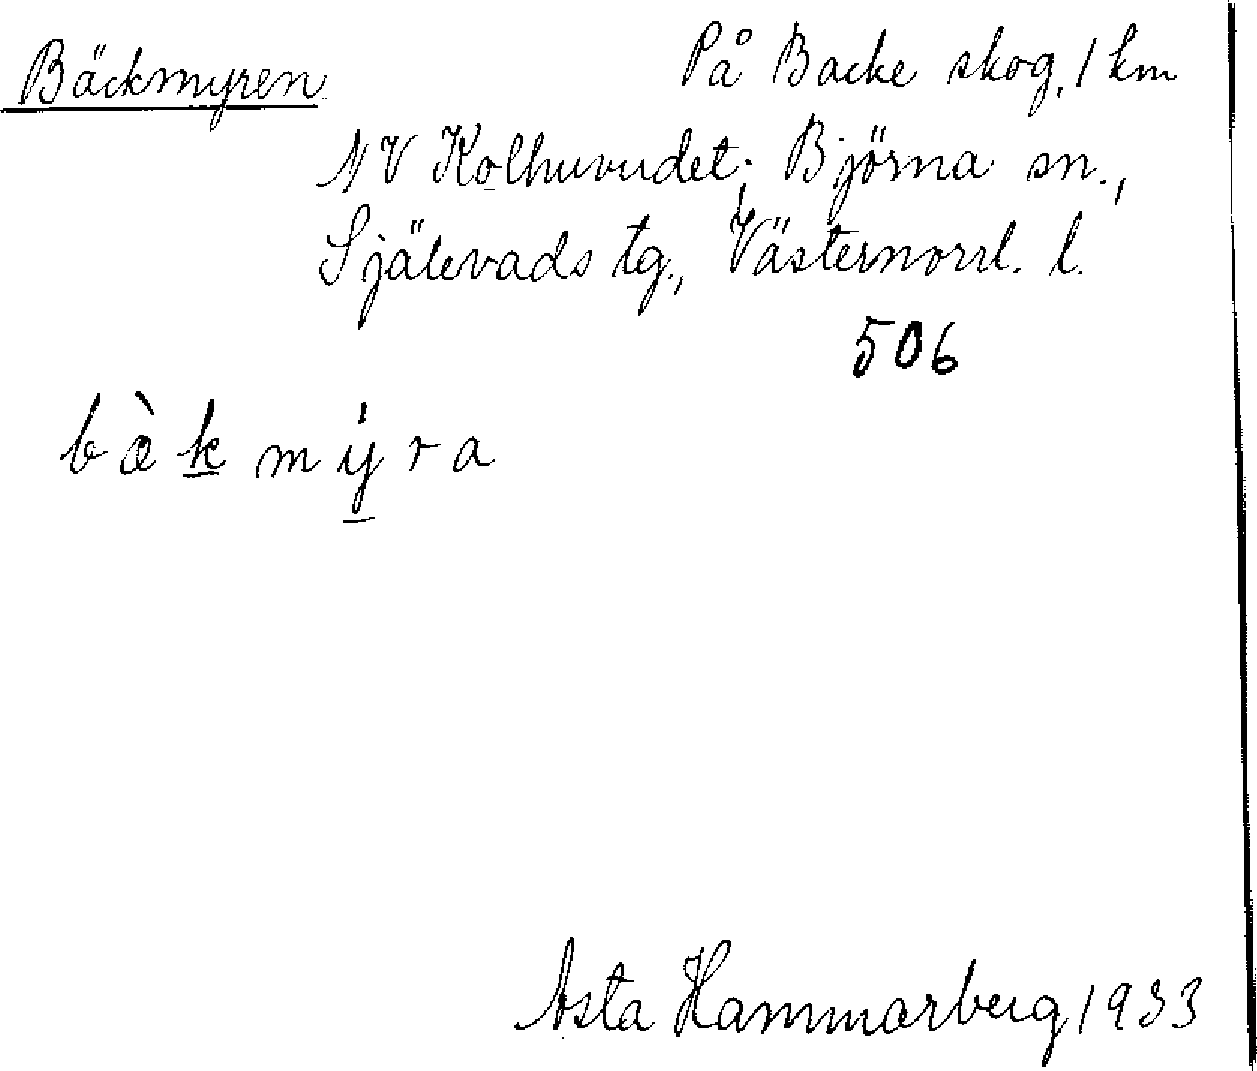 Bäckmyren
På Backe skog, 1 km
NV Kolhuvudet; Björna sn.,
Själevads tg., Västernorrl. l.
506
bæ̀k mýra
Asta Hammarberg 1933